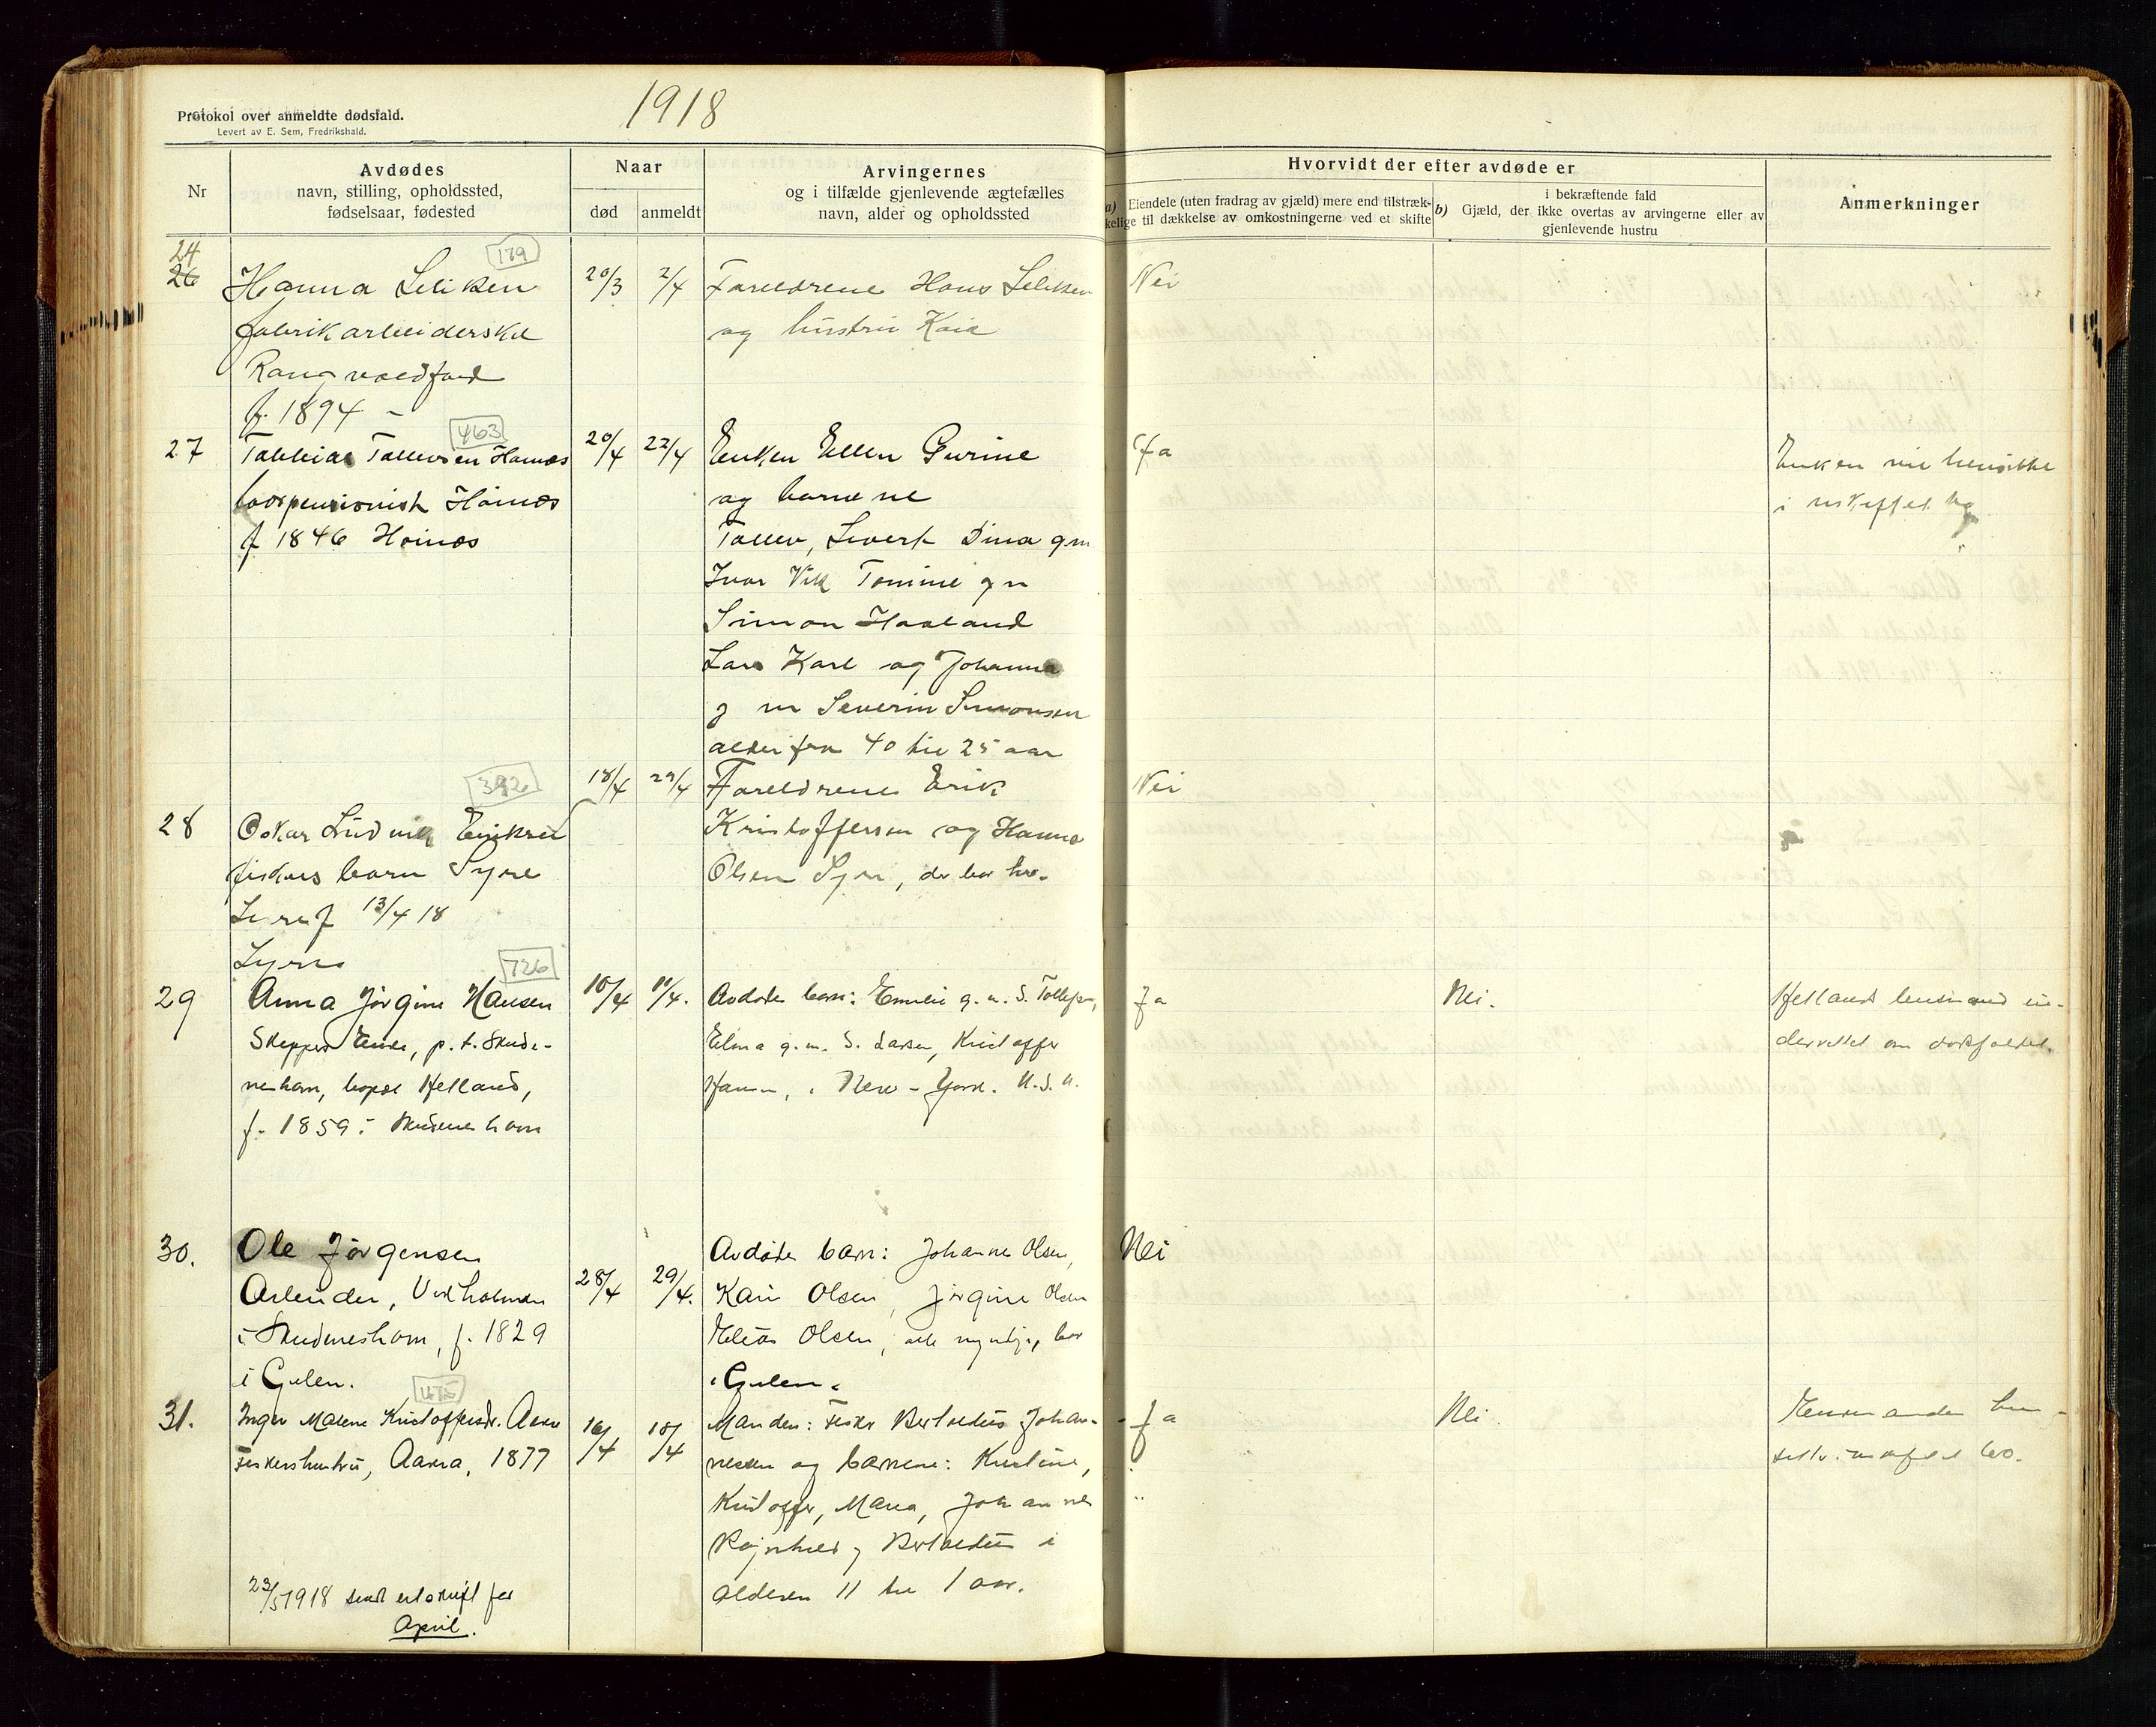 1918
Protokol over anmeldte dødsfald.
Levert av E. Sem, Fredrikshald.
Nr
Avdødes
navn, stilling, opholdssted,
fødselsaar, fødested
Naar
død
anmeldt
Arvingernes
og i tilfælde gjenlevende ægtefælles
navn, alder og opholdssted
Hvorvidt der efter avdøde er
a) Eiendele (uten fradrag av gjæld) mere end tilstræk-
kelige til dækkelse av omkostningerne ved et skifte
b) i bekræftende fald
Gjæld, der ikke overtas av arvingerne eller av
gjenlevende hustru
Anmerkninger
24
26
179
Hanna
fabrikarbeiderske
f. 1894 -
20/3
2/4
Foreldrene Hans
og hustru Kaia
Nei
27
463
Tollevsen
f 1846
20/4
22/4
Enken Ellen Gurine
og barnene
Tollev, Sivert Dina gm
Ivar Vik Tomine gm
Simon Haaland
Lars Karl og Johanna
g m Severin Simonsen
alder fra 40 til 25 aar
Ja
Enken
i uskiftet bo
28
392
Oskar Ludvik Eriksen
fiskers barn Syre
f 13/4 18
Syre
18/4
29/4
Foreldrene Erik
Kristoffersen og Hanna
Olsen Syre, der bor her.
Nei
29
726
Anna Jørgine Hansen
Skippers Enke, p.t. Skude-
neshavn, bopæl Helland,
f. 1859 i Skudeneshavn
10/4
11/4.
Avdødes barn: Emelie g. m. S. Tollefsen,
Elma g. m. S. Larsen, Kristoffer
Hansen, i New-York. U.S.A.
Ja
Nei.
Hetlands lensmand un-
derrettet om dødsfaldet.
30.
Ole Jørgensen
Arbeider, Vikholmen
i Skudeneshavn, f. 1829
i Gulen.
28/4
29/4.
Avdødes barn: Johanne Olsen,
Kari Olsen, Jørgine Olsen
Elias Olsen, alle myndige, bor
i Gulen.
Nei
31.
Inger Malene Kristoffersdr. Aakra
Fiskershustru, Aakra, 1877
16/4
18/4
Manden: Fisker Bertoldus Johan-
nessen og barnene: Kristine,
Kristoffer, Maria, Johannes
Ragnhild og Bertoldus i
alderen 11 til 1 aar.
Ja
Nei.
bo.
23/5 1918 sendt utskrift for
April.